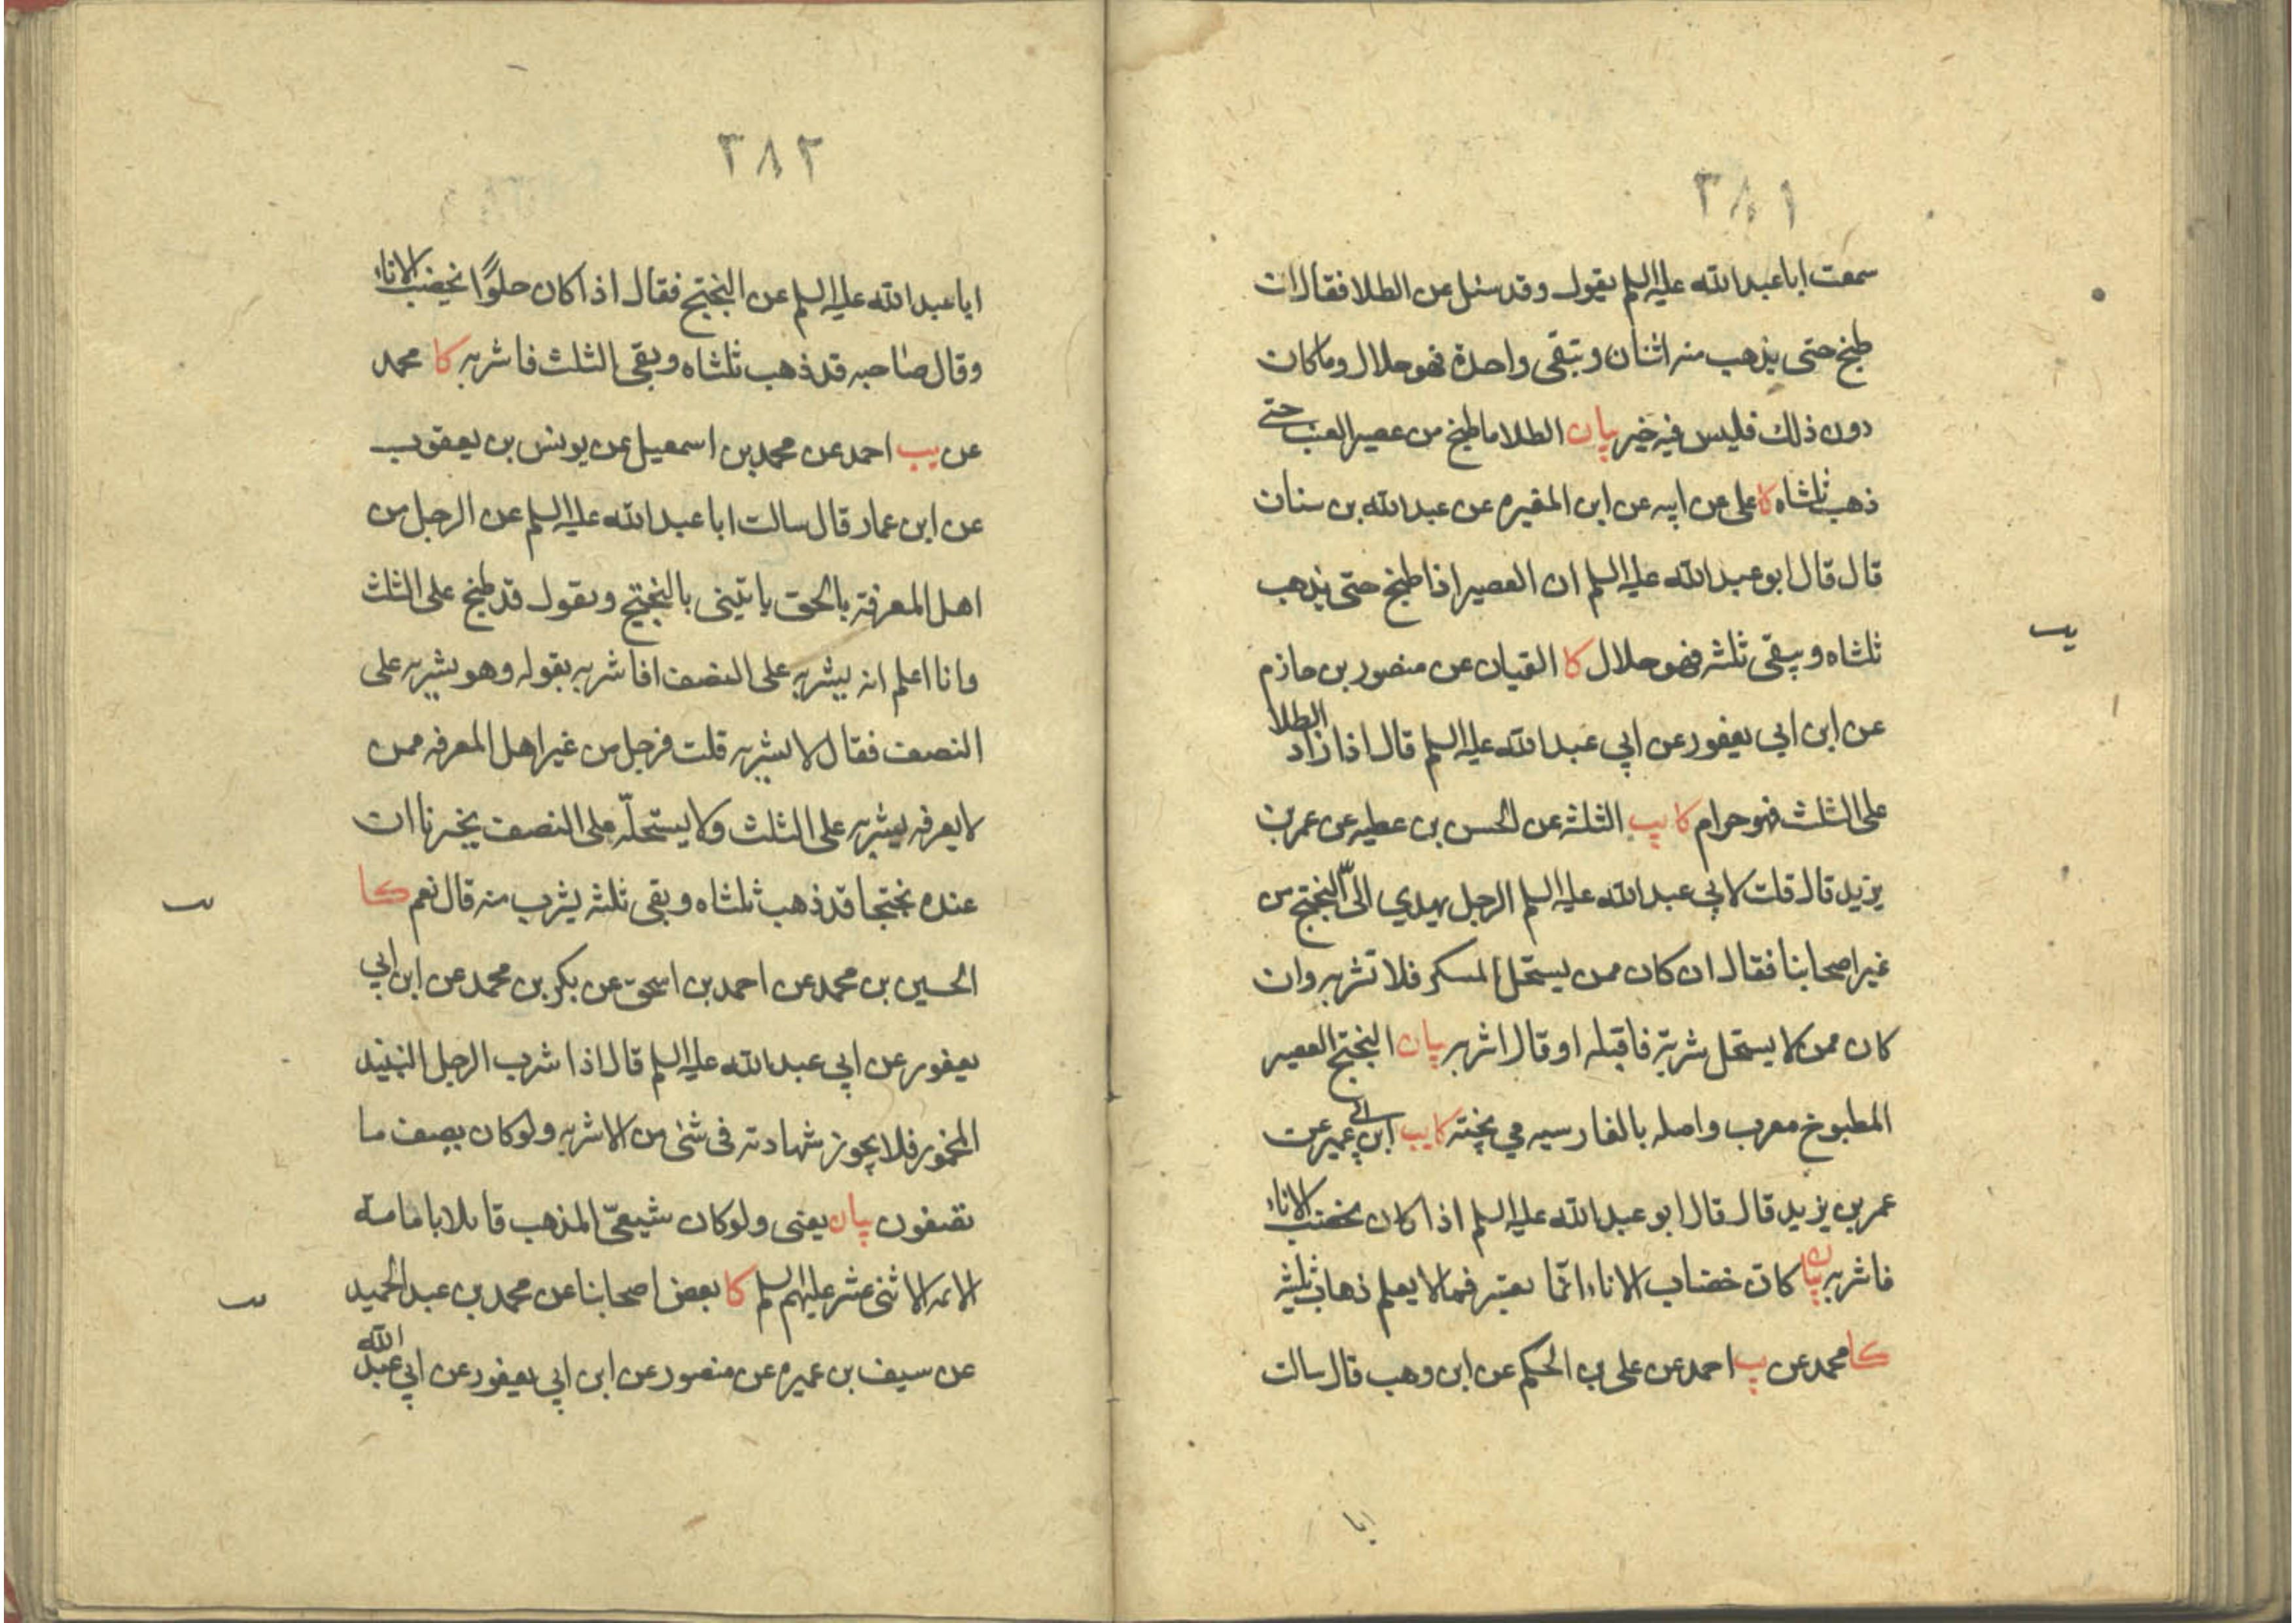 ٣٨١
سمعت ابا عبد الله عليه السلم يقول وقد سئل عن الطلا فقال ان
طبخ حتى يذهب منه اثنان وتبقى واحدة فهو حلال وما كان
دون ذلك فليس فيه خير بيان الطلا ما طبخ من عصير العنب حتى
ذهب ثلثاه كا على عن ابيه عن ابن المغيره عن عبد الله بن سنان
قال قال ابو عبد الله عليه السلم ان العصير اذا طبخ حتى يذهب
ثلثاه ويبقى ثلثه فهو حلال كا القميان عن منصور بن حازم
يب
عن ابن ابي يعفور عن ابي عبد الله عليه السلم قال اذا زاد الطلا
على الثلث فهو حرام كا يب الثلثة عن الحسن بن عطيه عن عمر بن
يزيد قال قلت لابي عبد الله عليه السلم الرجل يهدي الىّ البختج من
غير اصحابنا فقال ان كان ممن يستحل المسكر فلا تشربه وان
كان ممن لا يستحل شربة فاقبله او قال اشربه بيان البختج العصير
المطبوخ معرب واصله بالفارسيه مي پخته كا يب ابن ابي عمير عن
عمر بن يزيد قال قال ابو عبد الله عليه السلم اذا كان يخضب الاناء
فاشربه بيان كان خضاب الاناء انمّا يعتبر فيما لا يعلم ذهاب ثلثيه
كا محمد عن يب احمد عن على بن الحكم عن ابن وهب قال سالت
ابا
٣٨٢
ابا عبد الله عليه السلم عن البختج فقال اذا كان حلوًا يخضب الاناء
وقال صاحبه قد ذهب ثلثاه وبقى الثلث فاشربه كا محمد
عن يب احمد عن محمد بن اسمعيل عن يونس بن يعقوب
عن ابن عمار قال سالت ابا عبد الله عليه السلم عن الرجل من
اهل المعرفة بالحق ياتينى بالبختج ويقول قد طبخ على الثلث
وانا اعلم انه يشربه على النصف افاشربه بقوله وهو يشربه على
النصف فقال لا تشربه قلت فرجل من غير اهل المعرفه ممن
لا يعرفه يشربه على الثلث ولا يستحلّه على النصف يخبرنا ان
عنده بختجا قد ذهب ثلثاه وبقى ثلثه يشرب منه قال نعم كا
الحسين بن محمد عن احمد بن اسحق عن بكر بن محمد عن ابن ابي
يعفور عن ابي عبد الله عليه السلم قال اذا شرب الرجل النبيذ
المخمور فلا يجوز شهادته فى شئ من الاشربه ولو كان يصف ما
تصفون بيان يعنى ولو كان شيعىّ المذهب قائلا بامامة
الائمه الاثنى عشر عليهم السلم كا بعض اصحابنا عن محمد بن عبد الحميد
عن سيف بن عميره عن منصور عن ابن ابي يعفور عن ابي عبد الله